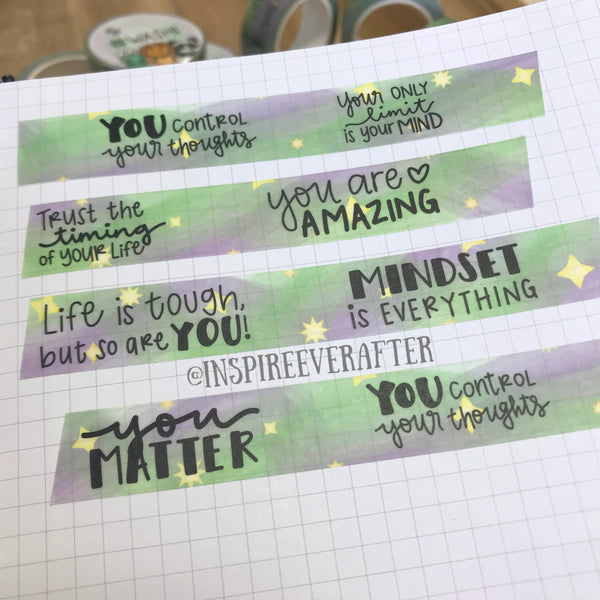 WASHI
YOU CONTROL
your thoughts
your ONLY
limit
is your MIND
TRUST the
timing
of YOUR Life
you are
AMAZING
Life is tough,
but so are YOU!
MINDSET
is EVERYTHING
@INSPIREEVERAFTER
you
MATTER
YOU CONTROL
your thoughts